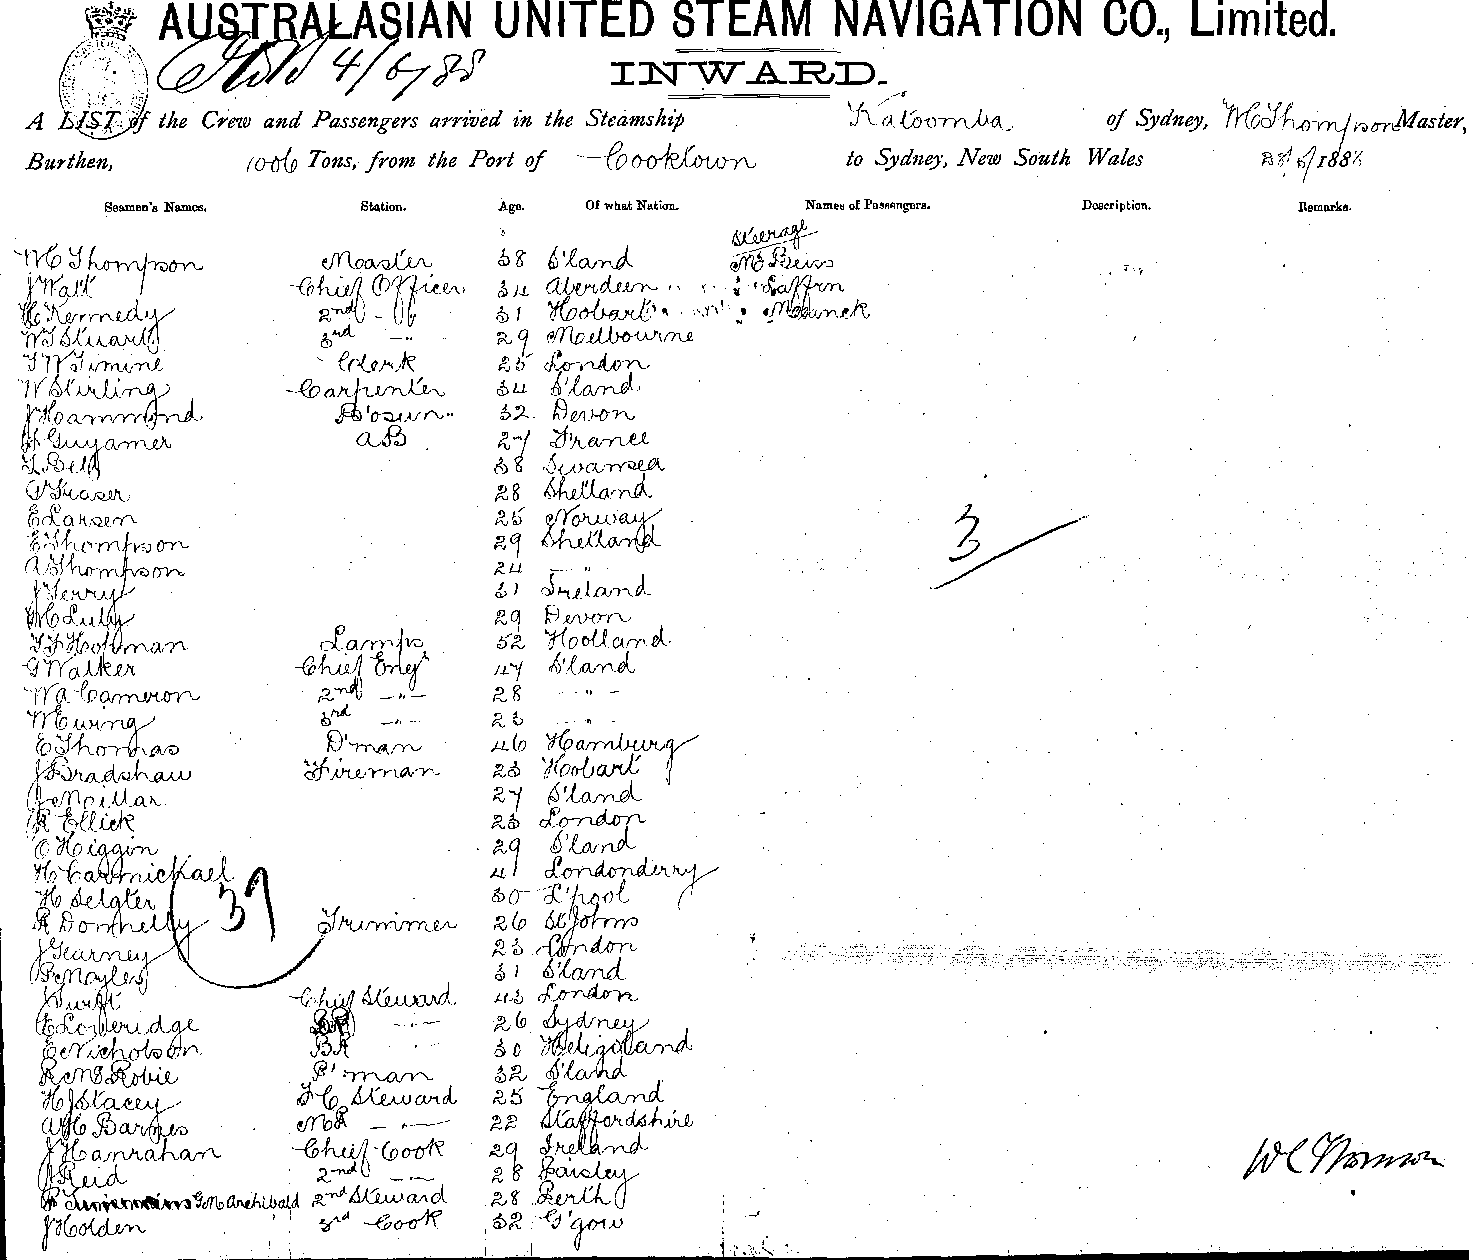 AUSTRALASIAN UNITED STEAM NAVIGATION CO., Limited.
4/6/88
INWARD.
A LIST of the Crew and Passengers arrived in the Steamship Katoomba of Sydney, W C Thompson Master,
Burthen, 1006 Tons, from the Port of Cooktown to Sydney, New South Wales 188
Seamen's Names. Station. Age. Of what Nation. Names of Passengers. Description. Remarks.
Steerage
W C Thompson Master 38 S'land Mr Beiss
J Watt Chief Officer 34 Aberdeen " " Saffrn
H Kennedy 2nd - " 31 Hobart " "
W J Stuart 3rd - " 29 Melbourne
Clerk 25 London
W Stirling Carpenter 34 S'land
J Hammond B'osun 32 Devon
Guyamer AB 27 France
Bell 38 Swansea
Fraser 28 Shetland
E Larsen 25 Norway
E Thompson 29 Shetland
A Thompson 24 - "
J Terry 31 Ireland
29 Devon
Hoffman Lamps 52 Holland
G Walker Chief Engr 47 S'land
W A Cameron 2nd - " - 28 - " -
W Ewing 3rd - " - 23 - "
E Thomas D'man 46 Hamburg
J Bradshaw Fireman 23 Hobart
27 S'land
R Ellick 23 London
O Higgin 29 S'land
H Carmickael 41 Londonderry
H Selgter 30 L'pool
R Donnelly Trimmer 26 St Johns
J Gearney 23 London
P Moyles 31 S'land
J Swift Chief Steward 43 London
E Loveridge - " - 26 Sydney
E Nicholson BR " 30 Heligoland
R McRobie P'man 32 S'land
H J Stacey F C Steward 25 England
A H Barnes MR - " - 22 Staffordshire
J Hanrahan Chief Cook 29 Ireland
J Reid 2nd - " - 28 Paisley
G M Archibald 2nd Steward 28 Perth
J Holden 3rd Cook 32 G'gow
3
37
W C Thomson